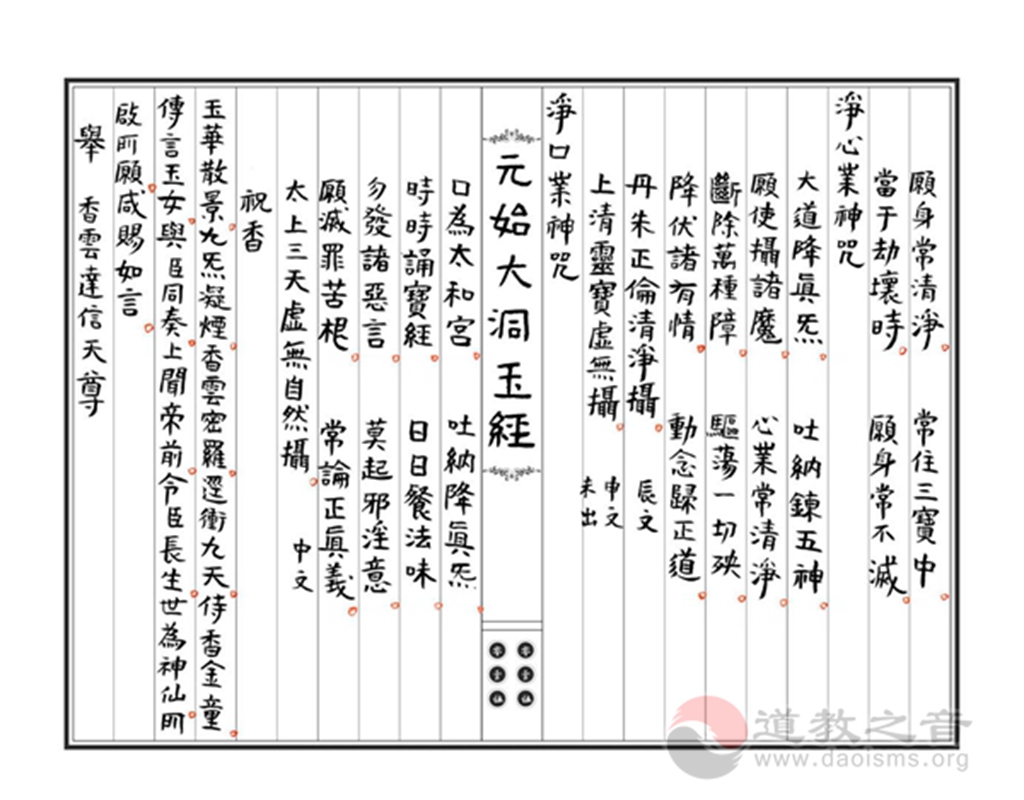 願身常清淨 常住三寶中
當于劫壞時 願身常不滅
淨心業神咒
大道降眞炁 吐納鍊五神
願使攝諸魔 心業常清淨
斷除萬種障 驅蕩一切殃
降伏諸有情 動念歸正道
丹朱正倫清淨攝 辰文
上清靈寶虛無攝 申文
未出
淨口業神咒
元始大洞玉經
口為太和宮 吐納降眞炁
時時誦寶經 日日餐法味
勿發諸惡言 莫起邪淫意
願滅罪苦根 常論正眞義
太上三天虛無自然攝 中文
祝香
玉華散景九炁凝煙香雲密羅逕衝九天侍香金童
傳言玉女與臣同奏上聞帝前令臣長生世為神仙所
啟所願咸賜如言
舉 香雲達信天尊
道教之音
www.daoisms.org